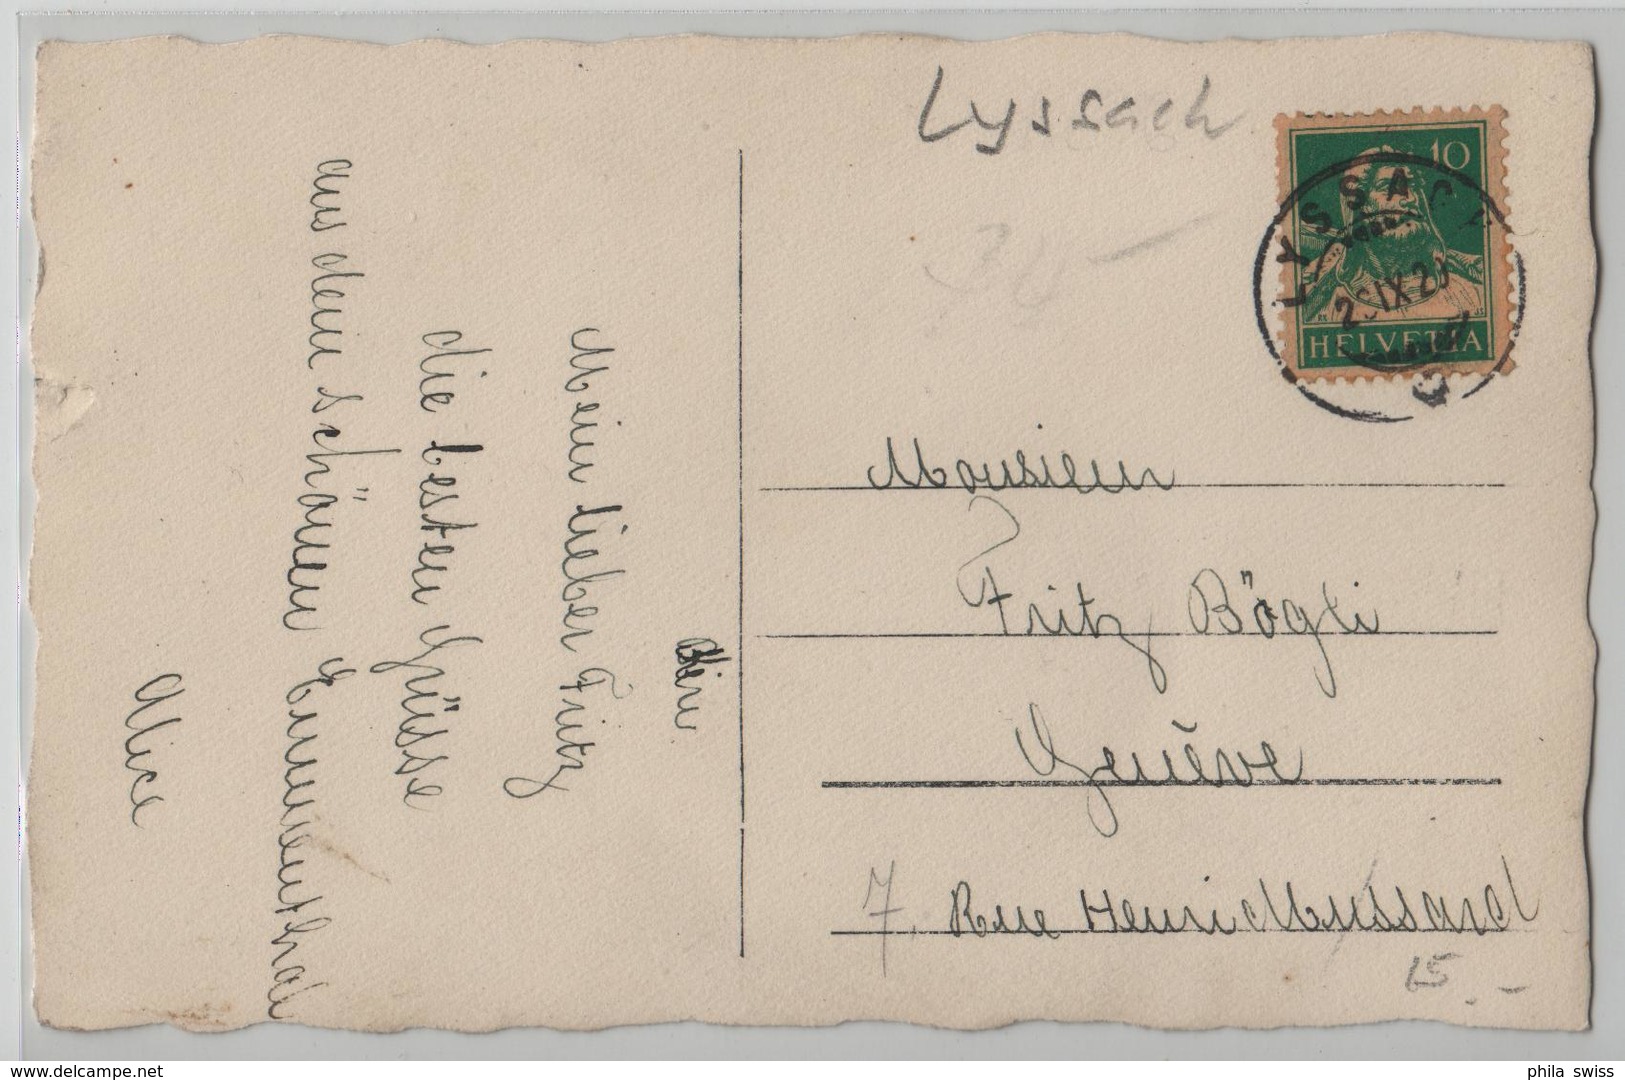 Lyssach
10
LYSSACH
IX.2
HELVETIA
Mein lieber Fritz
die besten Grüsse
aus dem schönen Emmenthal
Alice
Monsieur
Fritz Bögli
Genève
7, Rue Henri Mussard
15.-
delcampe.net
phila_swiss